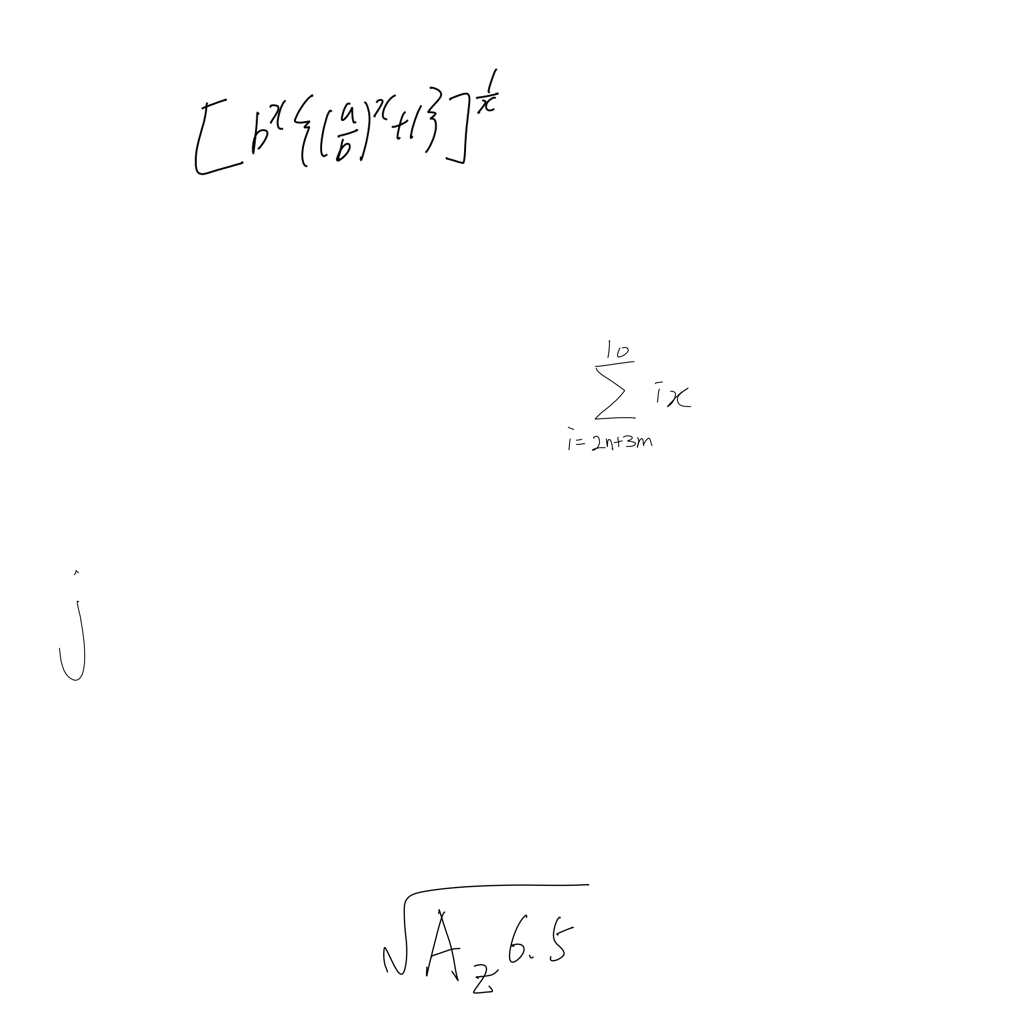 $\left[ b^x \left\{ \left( \frac{a}{b} \right)^x + 1 \right\} \right]^{\frac{1}{x}}$
$\sum_{i=2n+3m}^{10} ix$
$j$
$\sqrt{A_z 6.5}$